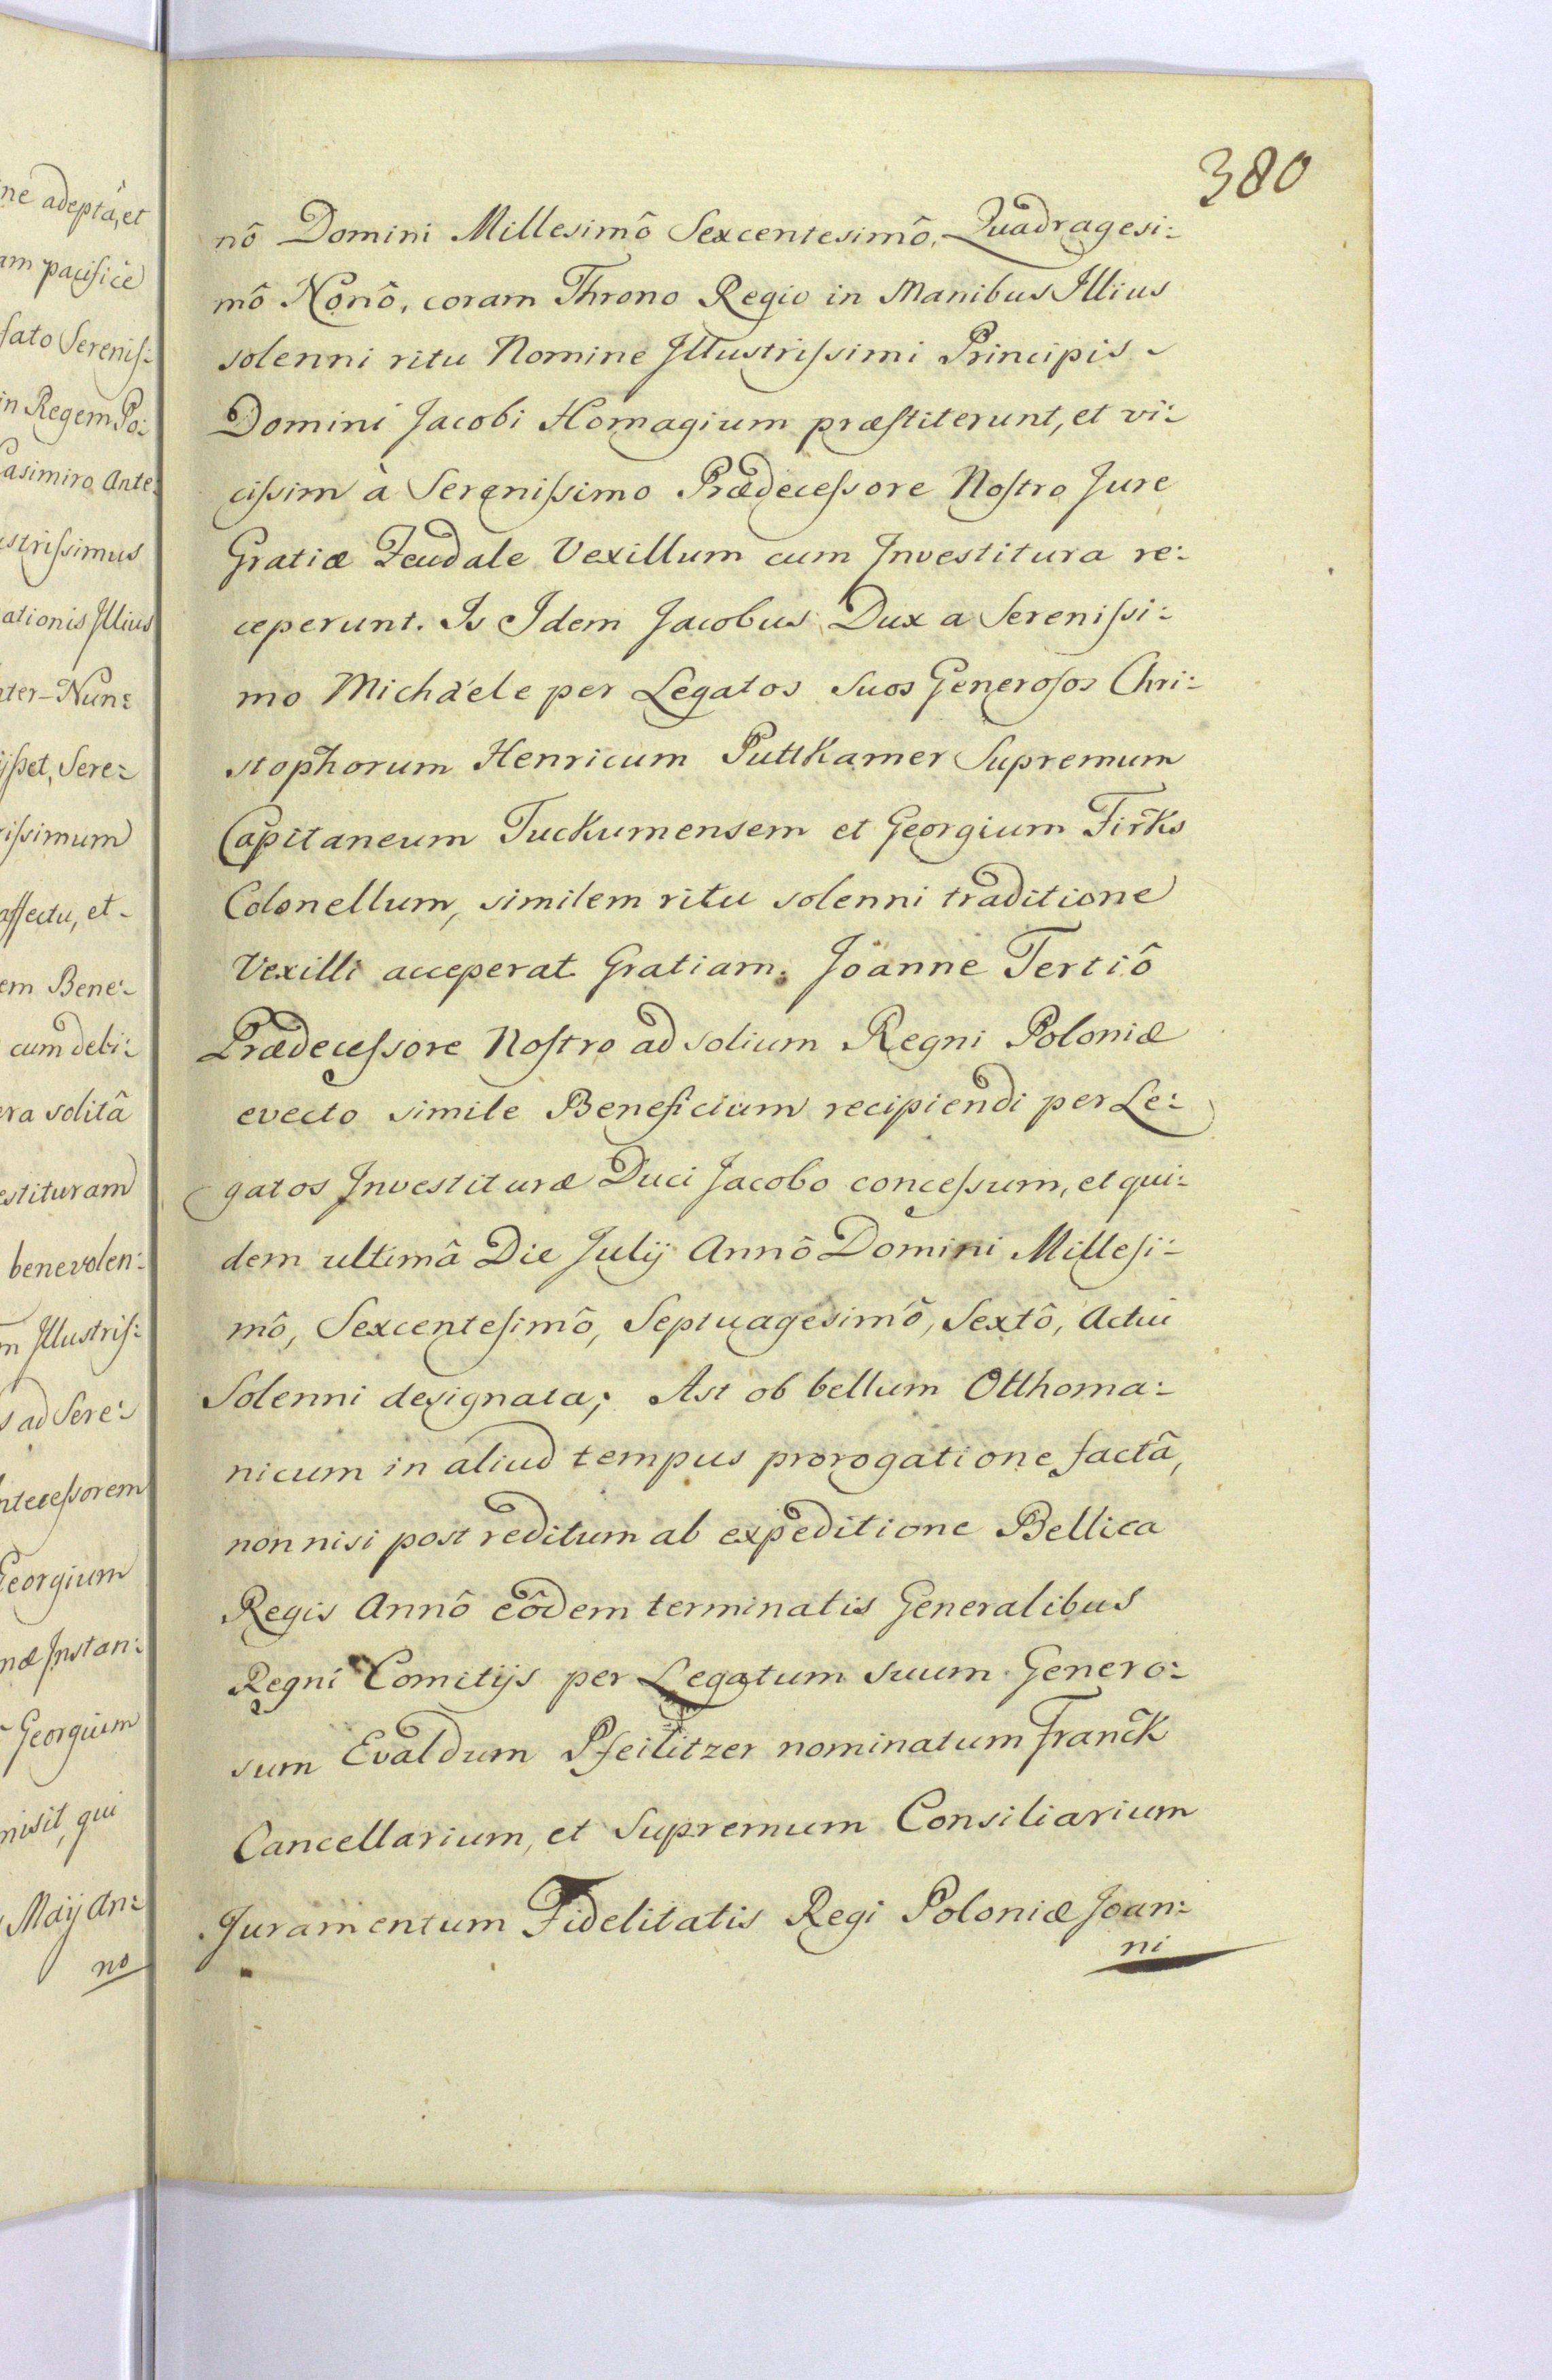 ne adeptâ, et
am pacifice
fato Sereniſ:
in Regem Po:
Casimiro Ante:
ustriſsimus
ationis Jllius
nter-Nun:
ijſset, Sere:
riſsimum
affectu, et
em Bene:
cum debi:
era solitâ
estituram
benevolen:
m Jllustriſ:
s ad Sere:
nteceſsorem
Georgium
næ Jnstan:
Georgium
misit, qui
Maij An:
no
380
nô Domini Millesimô Sexcentesimô, Quadragesi:
mô Nonô, coram Throno Regio in Manibus Jllius
solenni ritu Nomine Jllustriſsimi Principis
Domini Jacobi Homagium præſtiterunt, et vi:
ciſsim à Sereniſsimo Prædeceſsore Noſtro Jure
Gratiæ Feudale Vexillum cum Jnvestitura re:
ceperunt. Js Jdem Jacobus Dux a Sereniſsi:
mo Michaële per Legatos Suos Generoſos Chri:
stophorum Henricum Puttkamer Supremum
Capitaneum Tuckumensem et Georgium Firks
Colonellum, similem ritu solenni traditione
Vexilli acceperat Gratiam. Joanne Tertiô
Prædeceſsore Noſtro ad solium Regni Poloniæ
evecto simile Beneficium recipiendi per Le:
gatos Jnvestituræ Duci Jacobo conceſsum, et qui:
dem ultimâ Die Julij Annô Domini Milleſi:
mô, Sexcenteſimô, Septuagesimô, Sextô, Actui
Solenni designata; Ast ob bellum Otthoma:
nicum in aliud tempus prorogatione factâ,
non nisi post reditum ab expeditione Bellica
Regis Annô eôdem terminatis Generalibus
Regni Comitijs per Legatum suum Genero:
sum Evaldum Pfeilitzer nominatum Franck
Cancellarium, et Supremum Consiliarium
Juramentum Fidelitatis Regi Poloniæ Joan:
ni